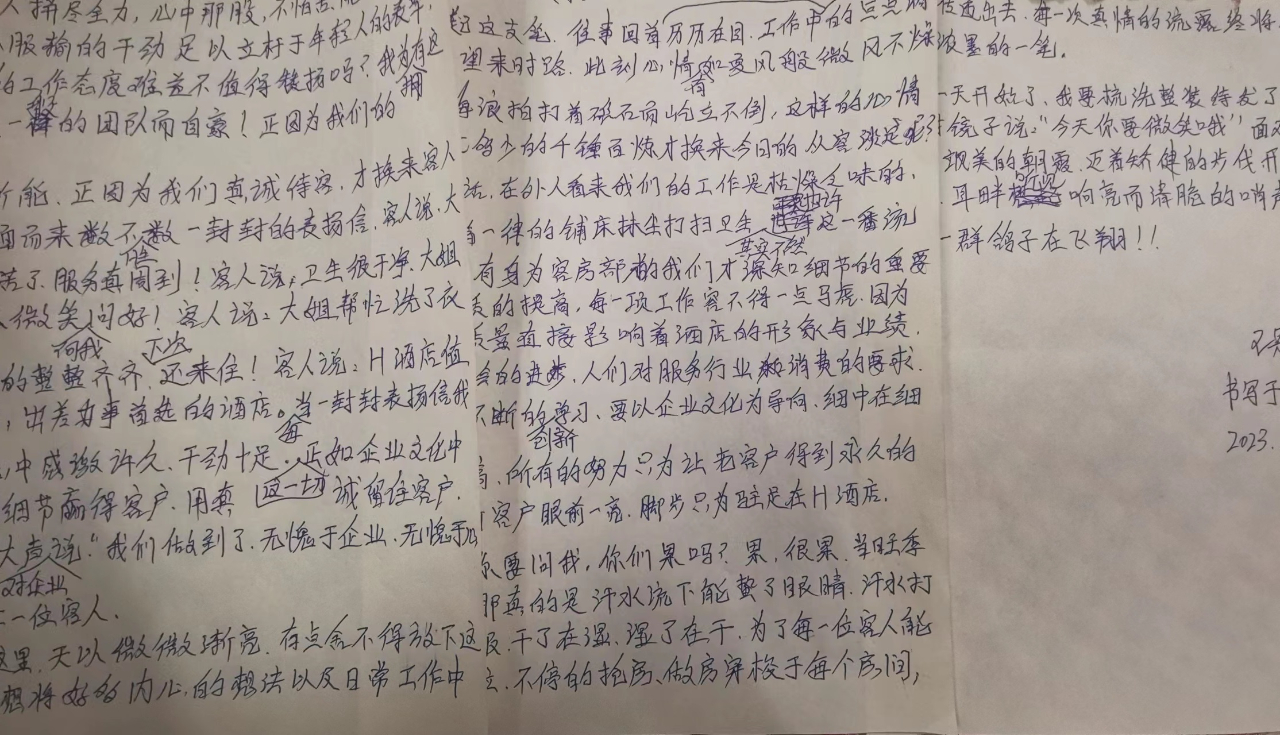 人拼尽全力，心中那股，不怕苦
服输的干劲足以立村于年轻人的表率，
的工作态度难道不值得赞扬吗？我为有这
拥
一群的团队而自豪！正因为我们的
能，正因为我们真诚待客，才换来客人
面而来数不数一封封的表扬信，客人说，大
尽
苦了，服务真周到！客人说，卫生很干净，大姐
微笑问好！客人说：大姐帮忙洗了衣
向我
下次
的整整齐齐，还来住！客人说：H酒店值
，出差办事首选的酒店。当一封封表扬信我
每
心中感激许久，干劲十足，正如企业文化中
细节赢得客户，用真这一切诚留住客户．
大声说"我们做到了，无愧于企业、无愧于
对企业
一位客人．
这里，天以微微渐亮，有点舍不得放下这
想将好多内心的想法以及日常工作中
这支笔，往事回首历历在目，工作中的点点
理来时路，此刻心情如夏风般微风不燥
有
海浪拍打着礁石而屹立不倒，这样的心情
多少的千锤百炼才换来今日的从容淡定呢？
话，在外人看来我们的工作是枯燥乏味的，
一律的铺床抹尘打扫卫生，也许这一番说
其实不然
有身为客房部的我们才深知细节的重要
的提高，每一项工作容不得一点马虎，因为
质量直接影响着酒店的形象与业绩．
会的进步，人们对服务行业和消费的要求．
不断的学习、要以企业文化为导向，细中在细
创新
，所有的努力只为让老客户得到永久的
客户眼前一亮，脚步只为驻足在H酒店．
要问我，你们累吗？累，很累，当旺季
那真的是汗水流下能蛰了眼睛，汗水打
，干了在湿、湿了在干，为了每一位客人能
，不停的抢房、做房穿梭于每个房间，
传递出去，每一次真情的流露终将
浓墨的一笔．
一天开始了，我要梳洗整装待发了
镜子说："今天你要微笑哦"面对
飘美的朝霞，迈着矫健的步伐开
耳畔听见响亮而清脆的哨声
一群鸽子在飞翔！！
书写于
2023.